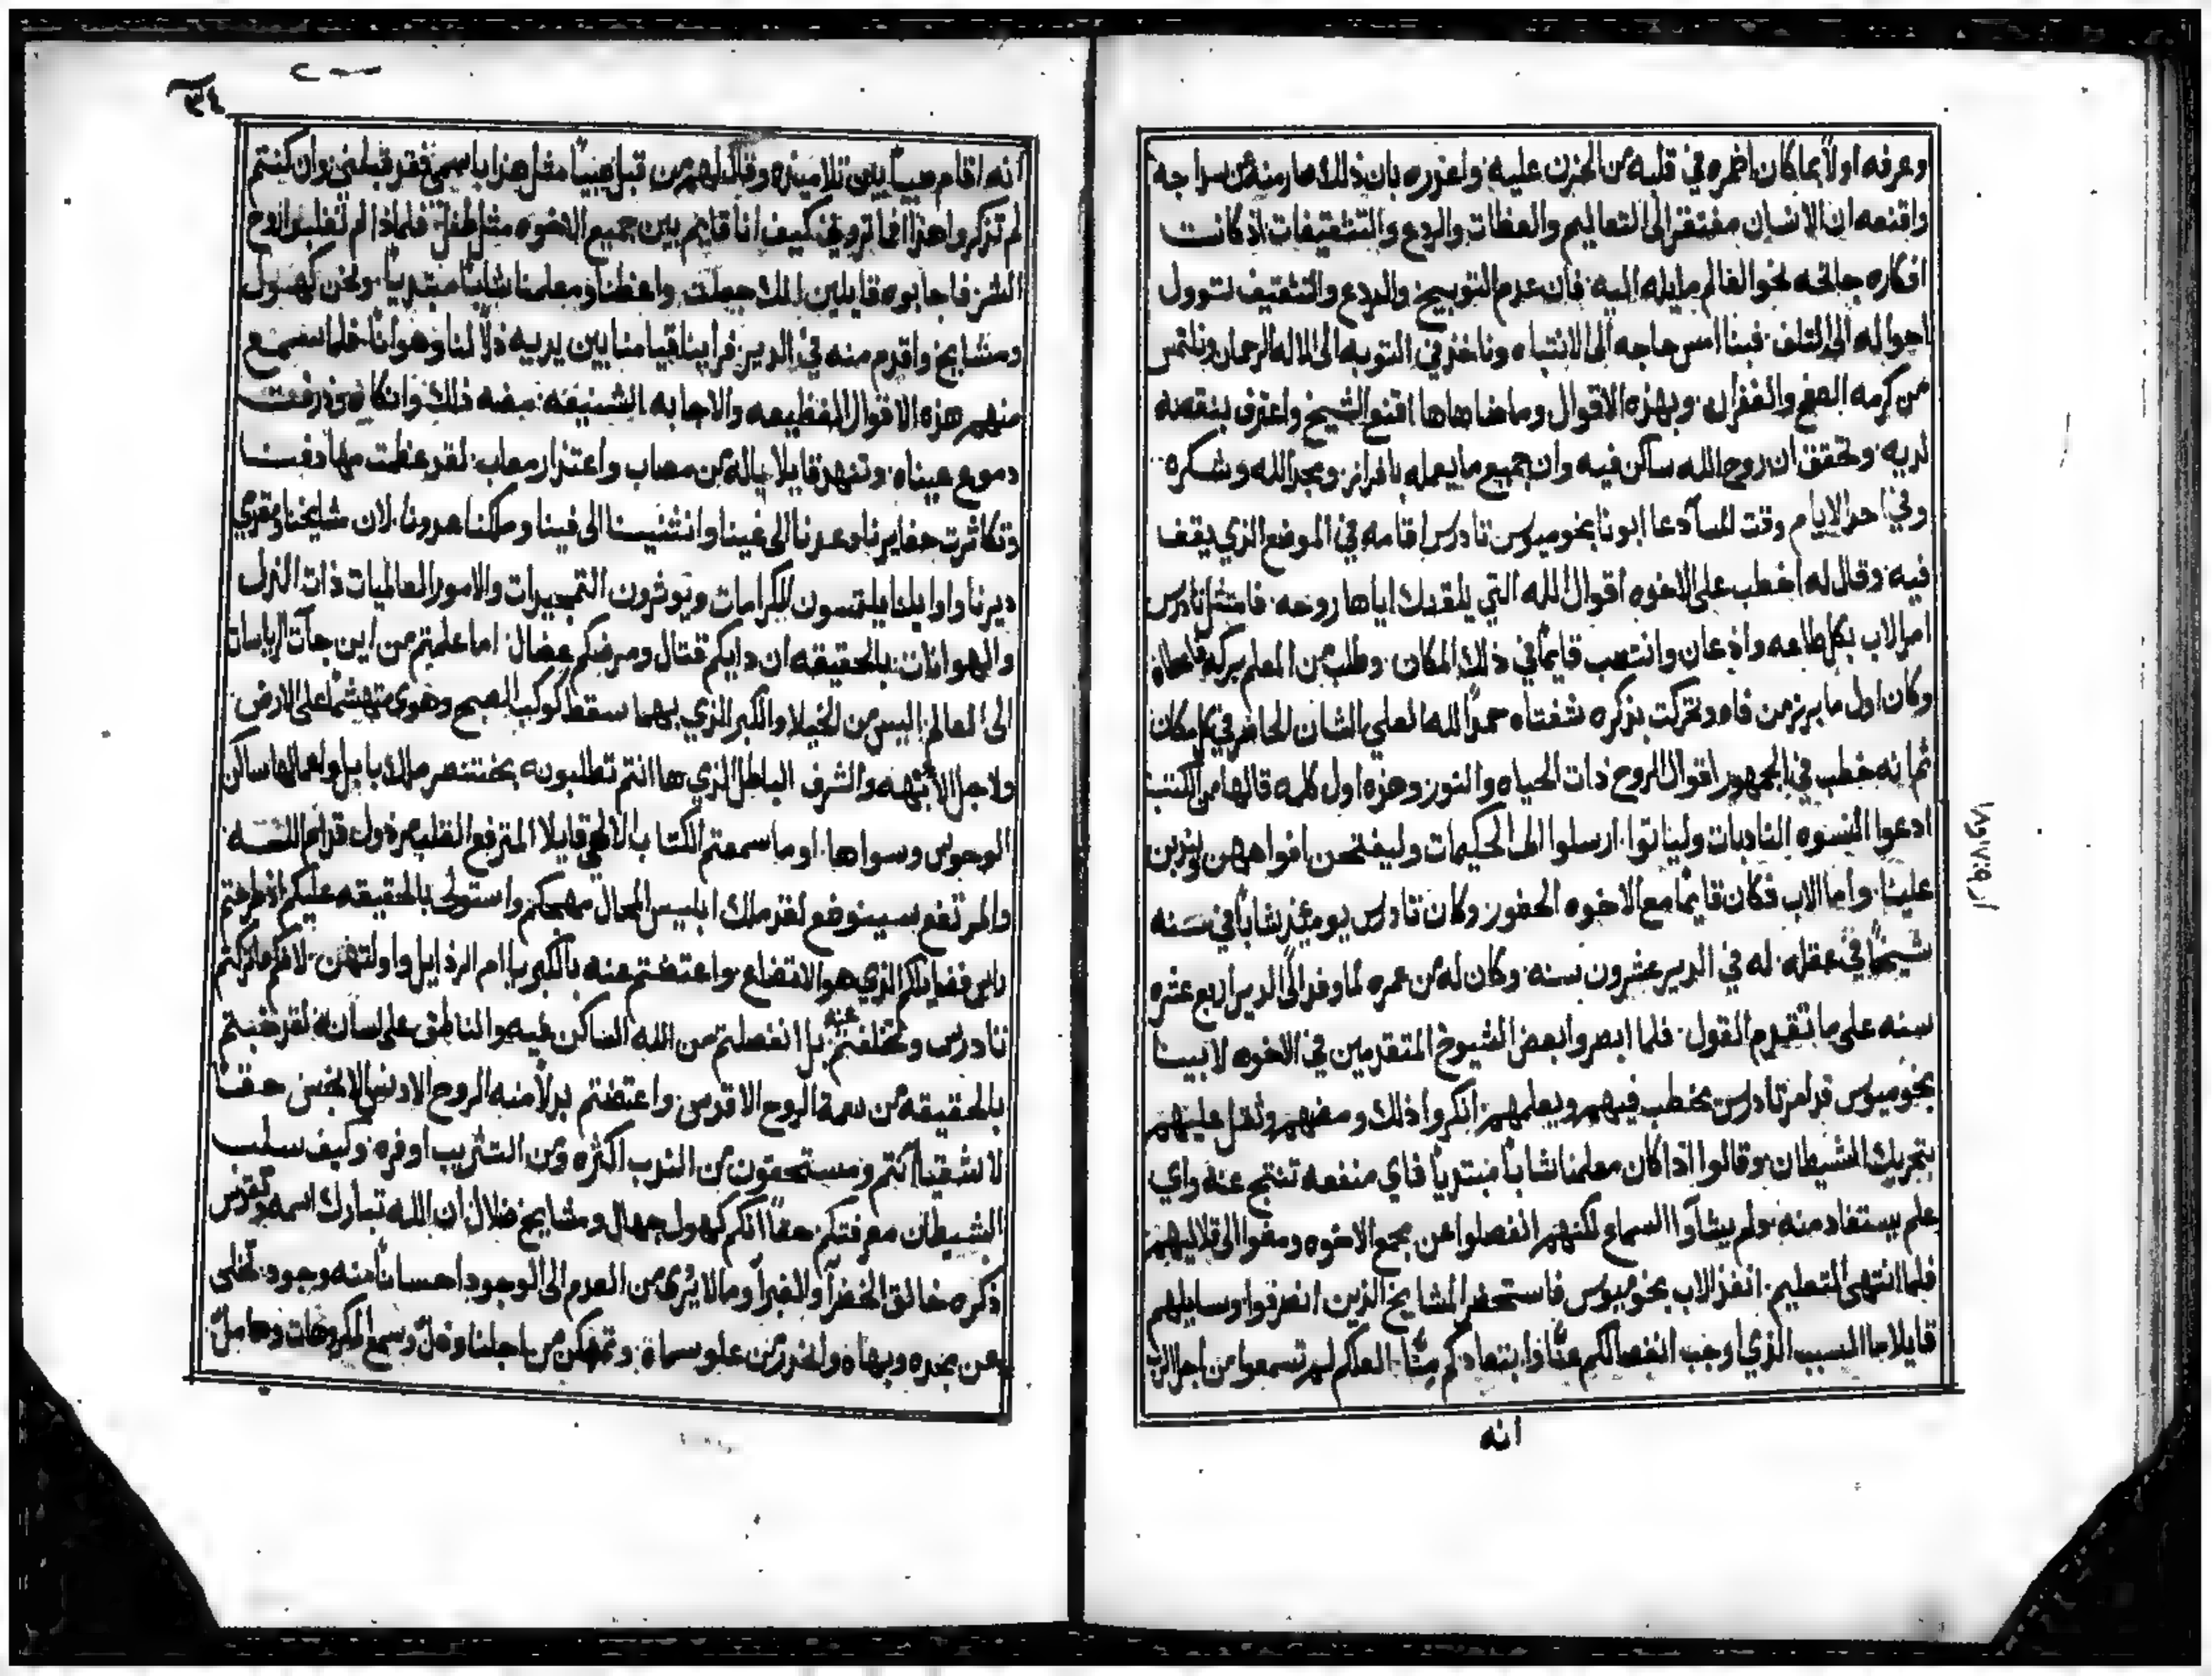 وعرفه اولاً بما كان اضمره في قلبه من الحزن عليه واعذره بان ذلك صار منه من سداجه
واقنعه ان الانسان مفتقر الى التعاليم والعظات والردع والتثقيفات اذ كانت
افكاره جانحه نحو العالم مايله اليه فان عدم التوبيخ والردع والتثقيف تتوول
احواله الى التلف فبنا امس حاجه الى الانتباه وناخذ في التوبه الى الاله الرحمان ونلتمس
من كرمه الصفح والغفران وبهذه الاقوال وما ضاهاها اقنع الشيخ واعترف بنقصه
لديه وتحقق ان روح الله ساكن فيه وان جميع ما يعمله بافراز ومجد الله وشكره
وفي احد الايام وقت المسآ دعا ابونا بخوميوس تادرس اقامه في الموضع الذي يقف
فيه وقال له اخطب على الاخوه اقوال الله التي يلقنك اياها روحه فامتثل تادرس
امر الاب بكل طاعه واذعان وانتصب قايماً في ذلك المكان وطلب من المعلم بركه
وكان اول ما برز من فاه وتحركت بذكره شفتاه حمداً لله العلي الشان الحاضر في كل مكان
ثم انه خطب في الجمهور اقوال الروح ذات الحياه والنور وهذه اول كلمه قالها من الكتب
ادعوا النسوه النادبات ولياتوا ارسلوا الى الحكيمات وليفتحن افواههن ويندبن
علينا واما الاب فكان قايماً مع الاخوه الحضور وكان تادرس يوميذ شاباً في سنه
شيخاً في عقله له في الدير عشرون سنه وكان له من عمره لما وفد الى الدير اربع عشره
سنه على ما تقدم القول فلما ابصروا بعض الشيوخ المتقدمين في الاخوه لابينا
بخوميوس قد امر تادرس يخطب فيهم ويعلمهم انكروا ذلك ومضهم وثقل عليهم
بتحريك الشيطان وقالوا اذا كان معلمنا شاباً مبتدياً فاي منفعه تنتج عنه واي
علم يستفاد منه ولم يشآوا السماع لكنهم انفصلوا من مجمع الاخوه ومضوا الى قلاليهم
فلما انتهى التعليم انفذ الاب بخوميوس فاستحضر المشايخ الذين انصرفوا وسايلهم
قايلا ما السبب الذي اوجب انفصالكم عنا وابتعادكم منا العلكم لم تسمعوا من اجل الرب
انه
ار ٩ : ١٧ و ١٨
٣٤
انه اقام صبياً بين تلاميذه وقال لهم من قبل صبياً مثل هذا باسمي فقد قبلني وان كنتم
لم تذكروا هذا افما تروني كيف انا قايم بين جميع الاخوه مثل طفل فلماذا لم تغلبوا روح
الشر فاجابوه قايلين انك جعلت واعظنا ومعلمنا شاباً مبتدياً ونحن كهول
ومشايخ واقدم منه في الدير فراينا قيامنا بين يديه ذلاً لنا وهواناً فلما سمع
منهم هذه الاقوال الفظيعه والاجابه الشنيعه مضه ذلك وانكاه وذرفت
دموع عيناه وتنهد قايلا ياله من مصاب واعتذار معاب لقد عظمت مهادفنا
وتكاثرت جفايرنا وعدنا الى غينا وانثنينا الى فينا وملكنا عدونا لان مشايخنا ومقدمي
ديرنا واوايلنا يلتمسون الكرامات ويوثرون التمجيدات والامور العالميات ذات الذل
والهوانات بالحقيقه ان دايكم قتال ومرضكم عضال اما علمتم من اين جآت الرياسات
الى العالم اليس من الخيلا والكبر الذي بهما سقط كوكب الصبح وهوى متهشماً على الارض
ولاجل الابهه والشرف الباطل الذي ها انتم تطلبونه بختنصر ملك بابل ساكن
الوحوش وسواها او ما سمعتم الكتاب الالهي قايلا المترفع القلب مرذول قدام الله
والمرتفع سيوضع لقد ملك ابليس المحال مهجكم واستولى بالحقيقه عليكم اذ طرحتم
راس فضايلكم الذي هو الاتضاع واعتضتم عنه بالكبريا ام الرذايل واولتهن لانكم ما تركتم
تادرس وتخلفتم عنه بل انفصلتم من الله الساكن فيه والناطق على لسانه لقد خبتم
بالحقيقه من نعمة الروح الاقدس واعتضتم بدلاً منه الروح الادنس الانجس حقاً
لاشقيا انتم ومستحقون من الندب اكثره ومن التثريب اوفره وكيف سلب
الشيطان معرفتكم حقاً انكم كهول جهال ومشايخ ضلال ان الله تبارك اسمه وتقدس
ذكره خالق الخضرآ والغبرآ وما لا يرى من العدم الى الوجود احساناً منه وجود تخلى
عن مجده وبهاه وانحدر من علو سماه وتمسكن من اجلنا وذل وسمع المكروهات وحامل